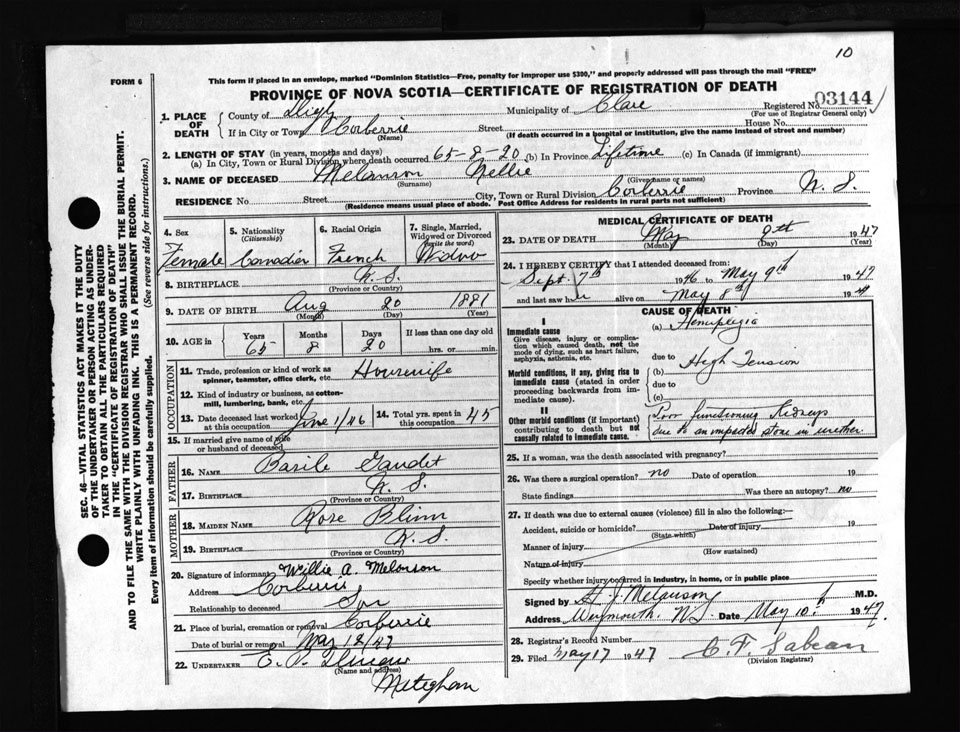 10
FORM 6
This form if placed in an envelope, marked "Dominion Statistics—Free, penalty for improper use $300," and properly addressed will pass through the mail "FREE"
PROVINCE OF NOVA SCOTIA—CERTIFICATE OF REGISTRATION OF DEATH
1. PLACE OF DEATH
County of Digby Municipality of Clare Registered No. 03144
(For use of Registrar General only)
If in City or Town Corberrie Street House No.
(Name) (If death occurred in a hospital or institution, give the name instead of street and number)
2. LENGTH OF STAY (in years, months and days)
(a) In City, Town or Rural Division where death occurred 65-8-20 (b) In Province Lifetime (c) In Canada (if immigrant)
3. NAME OF DECEASED Melanson Nellie
(Surname) (Given name or names)
RESIDENCE No. Street City, Town or Rural Division Corberrie Province N. S.
(Residence means usual place of abode. Post Office Address for residents in rural parts not sufficient)
4. Sex Female
5. Nationality (Citizenship) Canadian
6. Racial Origin French
7. Single, Married, Widowed or Divorced (write the word) Widow
8. BIRTHPLACE N. S.
(Province or Country)
9. DATE OF BIRTH Aug 20 1881
(Month) (Day) (Year)
10. AGE in Years 65 Months 8 Days 20 If less than one day old hrs. or min.
OCCUPATION
11. Trade, profession or kind of work as spinner, teamster, office clerk, etc. Housewife
12. Kind of industry or business, as cotton-mill, lumbering, bank, etc.
13. Date deceased last worked at this occupation June 1/46
14. Total yrs. spent in this occupation 45
15. If married give name of wife or husband of deceased
FATHER
16. NAME Basile Gaudet
17. BIRTHPLACE N. S.
(Province or Country)
MOTHER
18. MAIDEN NAME Rose Blinn
19. BIRTHPLACE N. S.
(Province or Country)
20. Signature of informant Willie A. Melanson
Address Corberrie
Relationship to deceased Son
21. Place of burial, cremation or removal Corberrie
Date of burial or removal May 12/47
22. UNDERTAKER E. P.
(Name and address)
Meteghan
MEDICAL CERTIFICATE OF DEATH
23. DATE OF DEATH May 9th 1947
(Month) (Day) (Year)
24. I HEREBY CERTIFY that I attended deceased from:
Sept. 7th 1946 to May 9th 1947
and last saw her alive on May 8th 1947
CAUSE OF DEATH
I
Immediate cause
Give disease, injury or complication which caused death, not the mode of dying, such as heart failure, asphyxia, asthenia, etc.
(a) Hemiplegia
due to
Morbid conditions, if any, giving rise to immediate cause (stated in order proceeding backwards from immediate cause).
(b) High Tension
due to
(c)
II
Other morbid conditions (if important) contributing to death but not causally related to immediate cause.
Poor functioning Kidneys
due to an impacted stone in urether.
25. If a woman, was the death associated with pregnancy?
26. Was there a surgical operation? no Date of operation 19
State findings Was there an autopsy? no
27. If death was due to external causes (violence) fill in also the following:—
Accident, suicide or homicide? Date of injury 19
(State which)
Manner of injury
(How sustained)
Nature of injury
Specify whether injury occurred in industry, in home, or in public place
Signed by H. J. Melanson M.D.
Address Weymouth NS Date May 10th 1947
28. Registrar's Record Number
29. Filed May 17 1947 C. F. Sabean
(Division Registrar)
SEC. 46—VITAL STATISTICS ACT MAKES IT THE DUTY
OF THE UNDERTAKER OR PERSON ACTING AS UNDER-
TAKER TO OBTAIN ALL THE PARTICULARS REQUIRED
IN THE "CERTIFICATE OF REGISTRATION OF DEATH"
AND TO FILE THE SAME WITH THE DIVISION REGISTRAR WHO SHALL ISSUE THE BURIAL PERMIT.
WRITE PLAINLY WITH UNFADING INK. THIS IS A PERMANENT RECORD.
Every item of information should be carefully supplied. (See reverse side for instructions.)